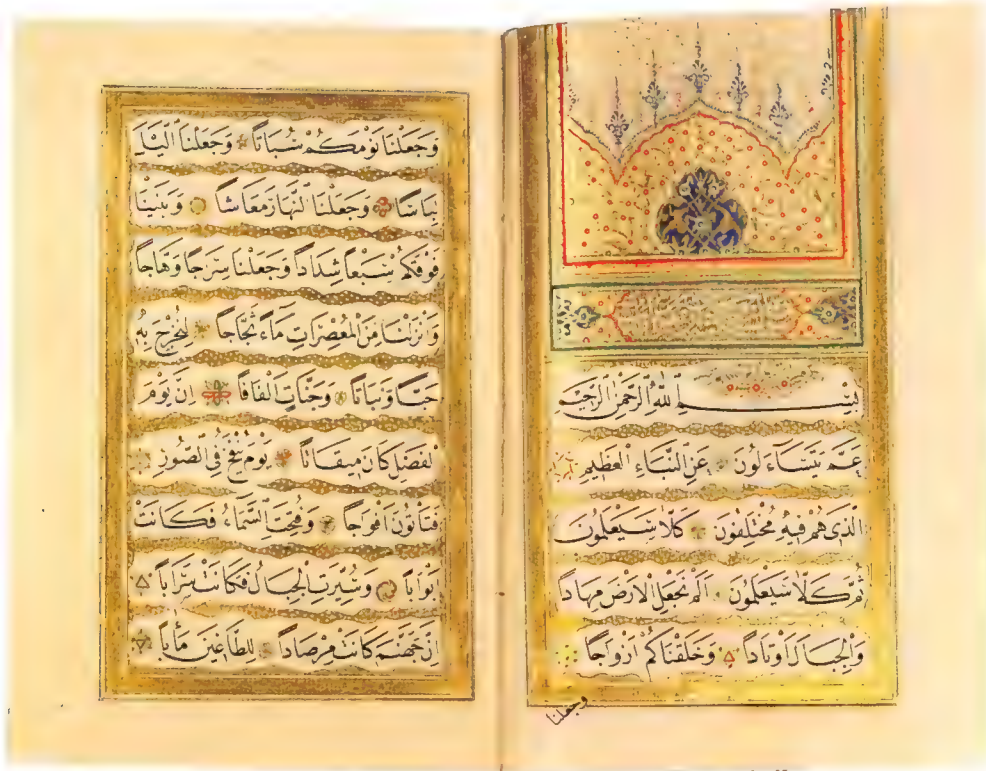 بِسْمِ اللّٰهِ الرَّحْمٰنِ الرَّحِيمِ
عَمَّ يَتَسَاءَلُونَ عَنِ النَّبَاءِ الْعَظِيمِ
الَّذِى هُمْ فِيهِ مُخْتَلِفُونَ كَلَّا سَيَعْلَمُونَ
ثُمَّ كَلَّا سَيَعْلَمُونَ اَلَمْ نَجْعَلِ الْاَرْضَ مِهَادًا
وَالْجِبَالَ اَوْتَادًا وَخَلَقْنَاكُمْ اَزْوَاجًا
وجعلنا
وَجَعَلْنَا نَوْمَكُمْ سُبَاتًا وَجَعَلْنَا الَّيْلَ
لِبَاسًا وَجَعَلْنَا النَّهَارَ مَعَاشًا وَبَنَيْنَا
فَوْقَكُمْ سَبْعًا شِدَادًا وَجَعَلْنَا سِرَاجًا وَهَّاجًا
وَاَنْزَلْنَا مِنَ الْمُعْصِرَاتِ مَاءً ثَجَّاجًا لِنُخْرِجَ بِهِ
حَبًّا وَنَبَاتًا وَجَنَّاتٍ اَلْفَافًا اِنَّ يَوْمَ
الْفَصْلِ كَانَ مِيقَاتًا يَوْمَ يُنْفَخُ فِى الصُّورِ
فَتَأْتُونَ اَفْوَاجًا وَفُتِحَتِ السَّمَاءُ فَكَانَتْ
اَبْوَابًا وَسُيِّرَتِ الْجِبَالُ فَكَانَتْ سَرَابًا
اِنَّ جَهَنَّمَ كَانَتْ مِرْصَادًا لِلطَّاغِينَ مَاٰبًا